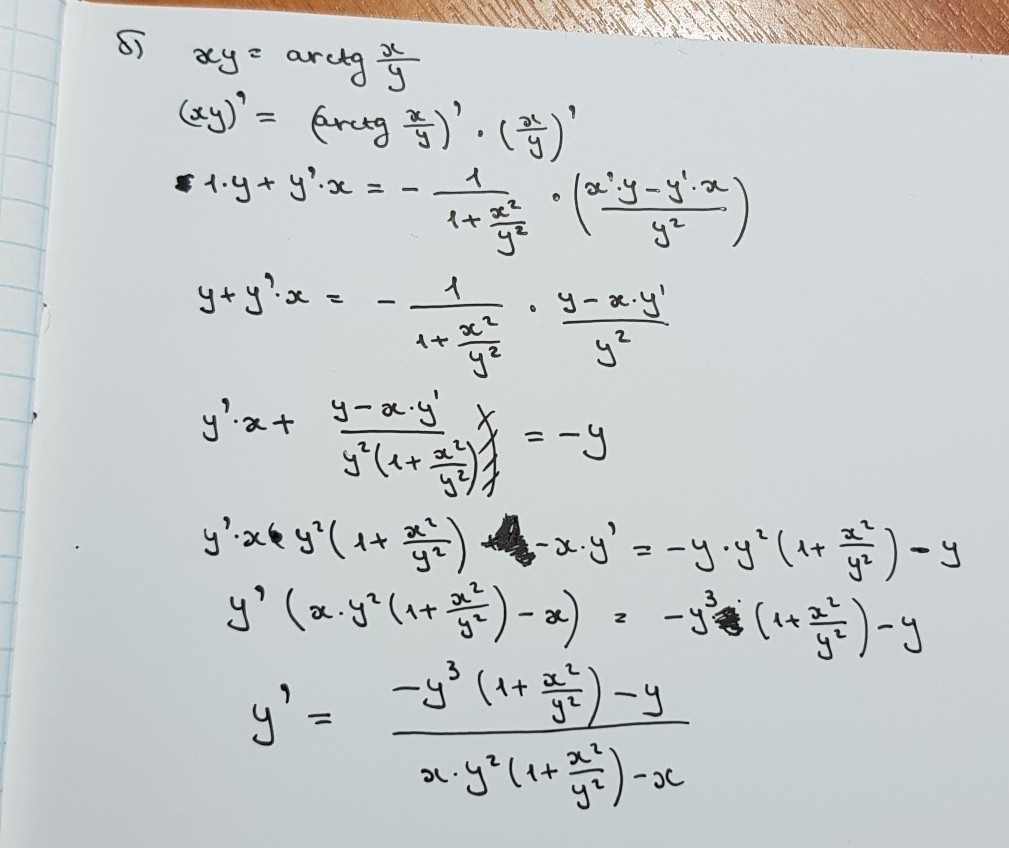 б) xy = arctg x/y
(xy)' = (arctg x/y)' · (x/y)'
1·y + y'·x = - 1/(1+x²/y²) · ((x'·y - y'·x)/y²)
y + y'·x = - 1/(1+x²/y²) · (y - x·y')/y²
y'·x + (y - x·y')/(y²(1+x²/y²)) = -y
y'·x · y²(1+x²/y²) - x·y' = -y·y²(1+x²/y²) - y
y'(x·y²(1+x²/y²) - x) = -y³(1+x²/y²) - y
y' = (-y³(1+x²/y²) - y)/(x·y²(1+x²/y²) - x)